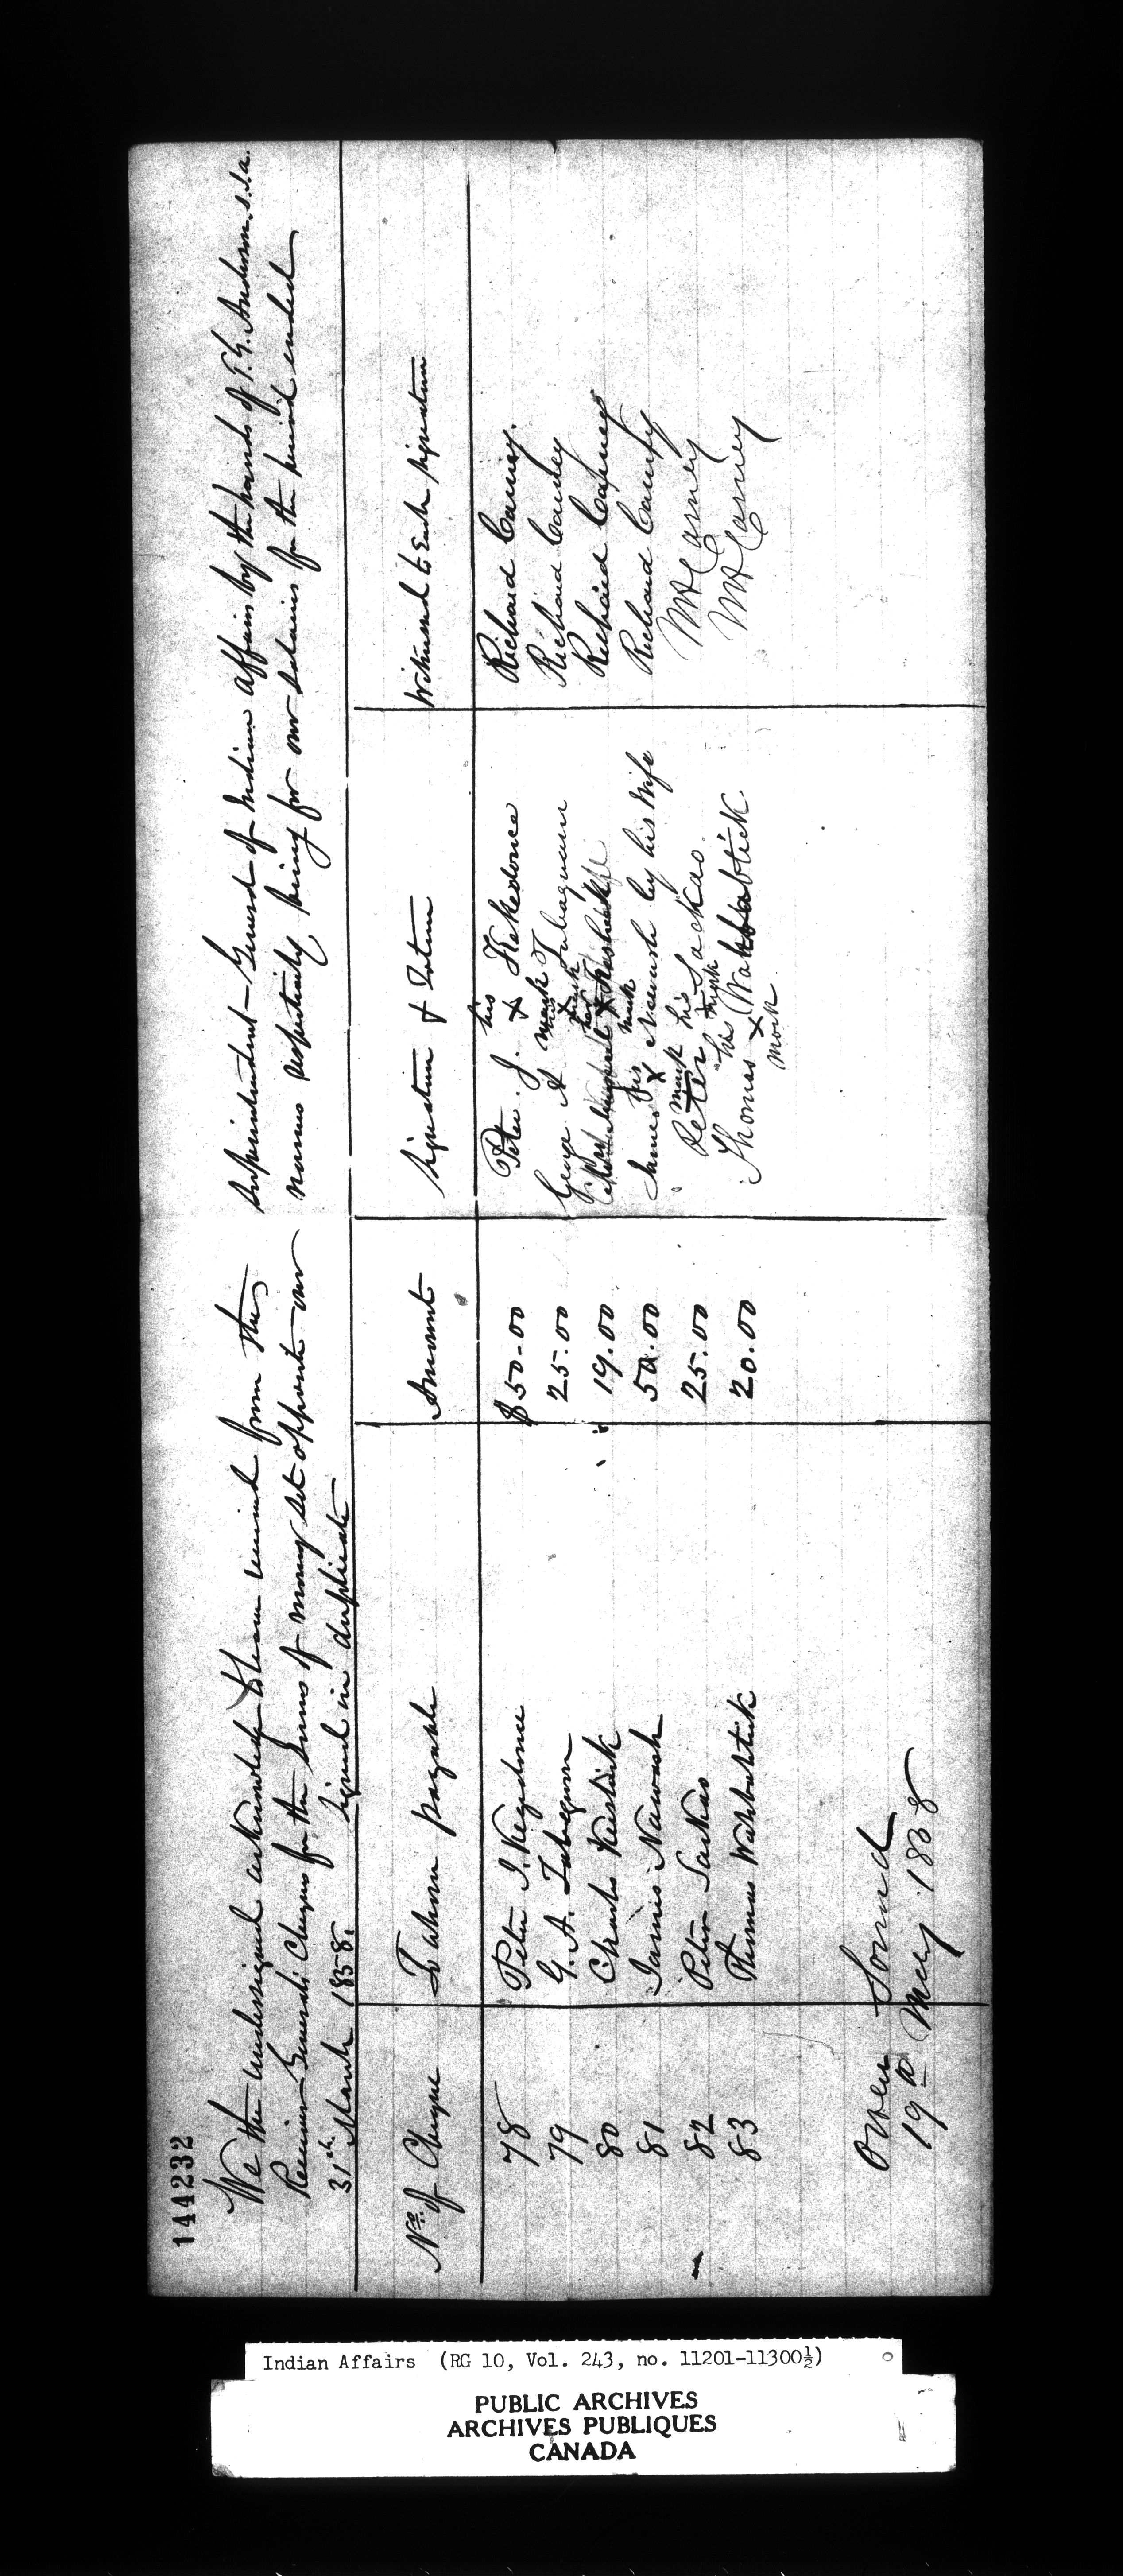 144232
We the undersigned acknowledge to have received from the Superintendent General of Indian Affairs by the hands of T.G. Anderson S.I.A.
Receiver Generals Cheques for the Sums of money set opposite our names respectively being for our Salaries for the period ended
31st March 1858. Signed in duplicate
No. of Cheque To whom payable Amount Signature & Totem Witnessed to Each Signature
78 Peter J. Kegedonce $50.00 Peter J. his x mark Kekedonce Richard Carney.
79 G. A. Tabegwun 25.00 George A his x mark Tabaguun Richard Carney
80 Charles Keeshick 19.00 Charles his x mark Keeshick Richard Carney
81 James Nawash 50.00 James his x mark Nawash by his Wife Richard Carney
82 Peter Sackao 25.00 Peter his x mark Sackao. W H Carney
83 Thomas Wahbahtick 20.00 Thomas his x mark Wahbahtick. W H Carney
Owen Sound
19th May 1858
Indian Affairs (RG 10, Vol. 243, no. 11201-11300½)
PUBLIC ARCHIVES
ARCHIVES PUBLIQUES
CANADA